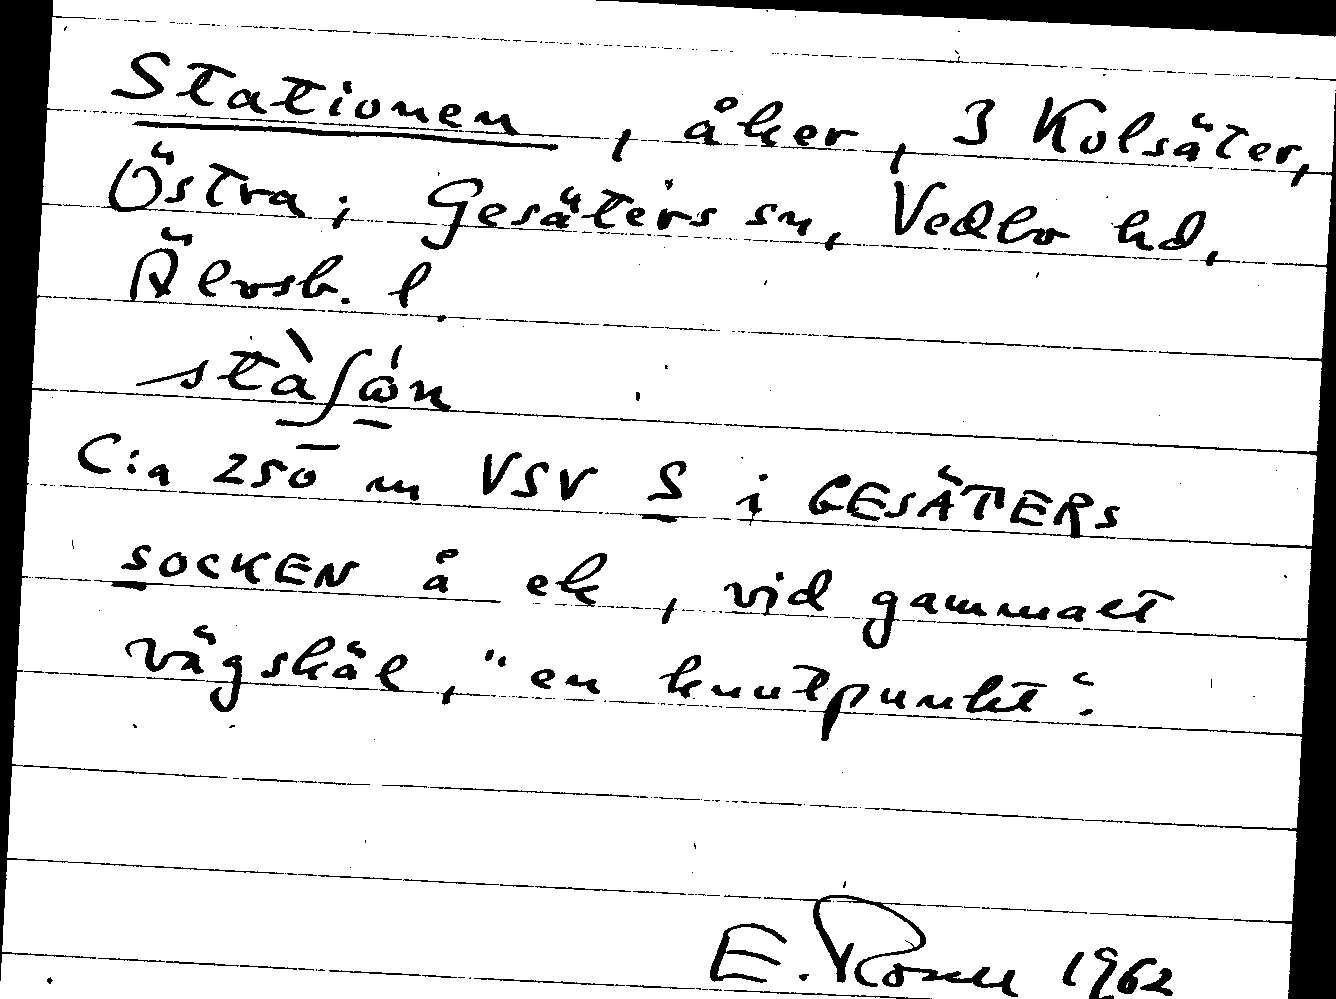 Stationen, åker, 3 Kolsäter,
Östra; Gesäters sn, Vedbo hd,
Älvsb. l.
C:a 250 m VSV S i GESÄTERS
SOCKEN å ek, vid gammalt
vägskäl, "en knutpunkt".
E. Rosell 1962